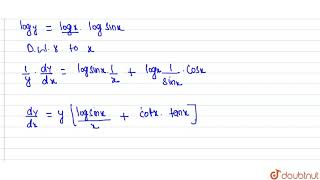 logy = logx. log sinx
D.W.R to x
1/y . dy/dx = logsinx . 1/x + logx 1/sinx . cosx
dy/dx = y [logsinx/x + cotx. tanx]
doubtnut